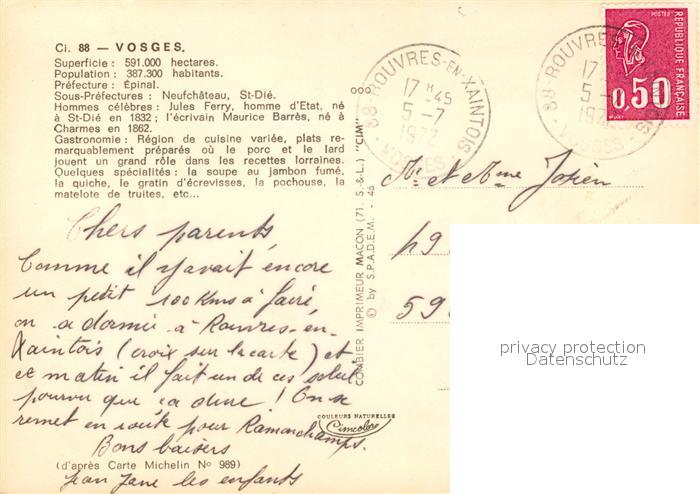 Ci. 88 — VOSGES.
Superficie : 591.000 hectares.
Population : 387.300 habitants.
Préfecture : Épinal.
Sous-Préfectures : Neufchâteau, St-Dié.
Hommes célèbres : Jules Ferry, homme d'Etat, né
à St-Dié en 1832 ; l'écrivain Maurice Barrès, né à
Charmes en 1862.
Gastronomie : Région de cuisine variée, plats re-
marquablement préparés où le porc et le lard
jouent un grand rôle dans les recettes lorraines.
Quelques spécialités : la soupe au jambon fumé,
la quiche, le gratin d'écrevisses, la pochouse, la
matelote de truites, etc...
Chers parents
Comme il y avait encore
un petit 100 Kms à faire
on a dormi à Rouvres-en-
Xaintois (croix sur la carte) et
ce matin il fait un de ces soleil
pourvu que ça dure ! On se
remet en route pour Ramonchamps.
Bons baisers
(d'après Carte Michelin No 989)
Jean Jane les enfants
COULEURS NATURELLES
Cimcolor
COMBIER IMPRIMEUR MACON (71, S.-&-L.) "CIM"
© by S.P.A.D.E.M. - 46
88 - ROUVRES-EN-XAINTOIS
17 H -45
5 -7
1972
VOSGES
88 - ROUVRES
17
5 -
1972
VOSGES
REPUBLIQUE FRANÇAISE
0,50
Mr et Mme Josien
49
59
privacy protection
Datenschutz